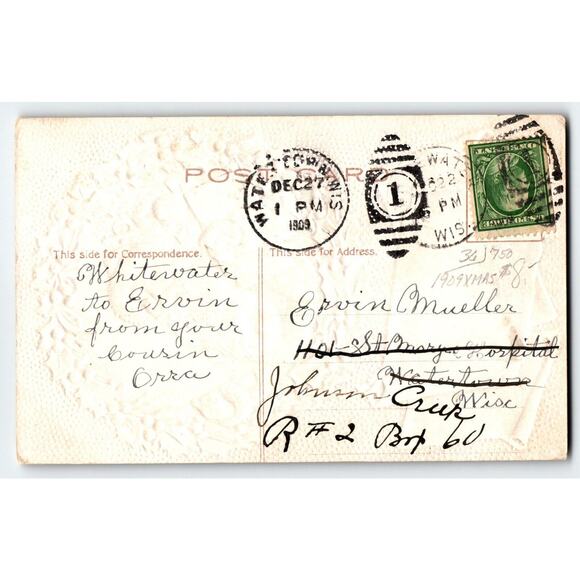 POST CARD
WATERTOWN, WIS
DEC 27
1 PM
1909
1
WAT
22
PM
WIS.
This side for Correspondence.
This side for Address.
34J 750
1909 XMAS $8-
Whitewater
to Ervin
from your
Cousin
Orra
Ervin Mueller
St Marys Hospital
Watertown
Wisc
Johnson Creek
R # 2 Box 60